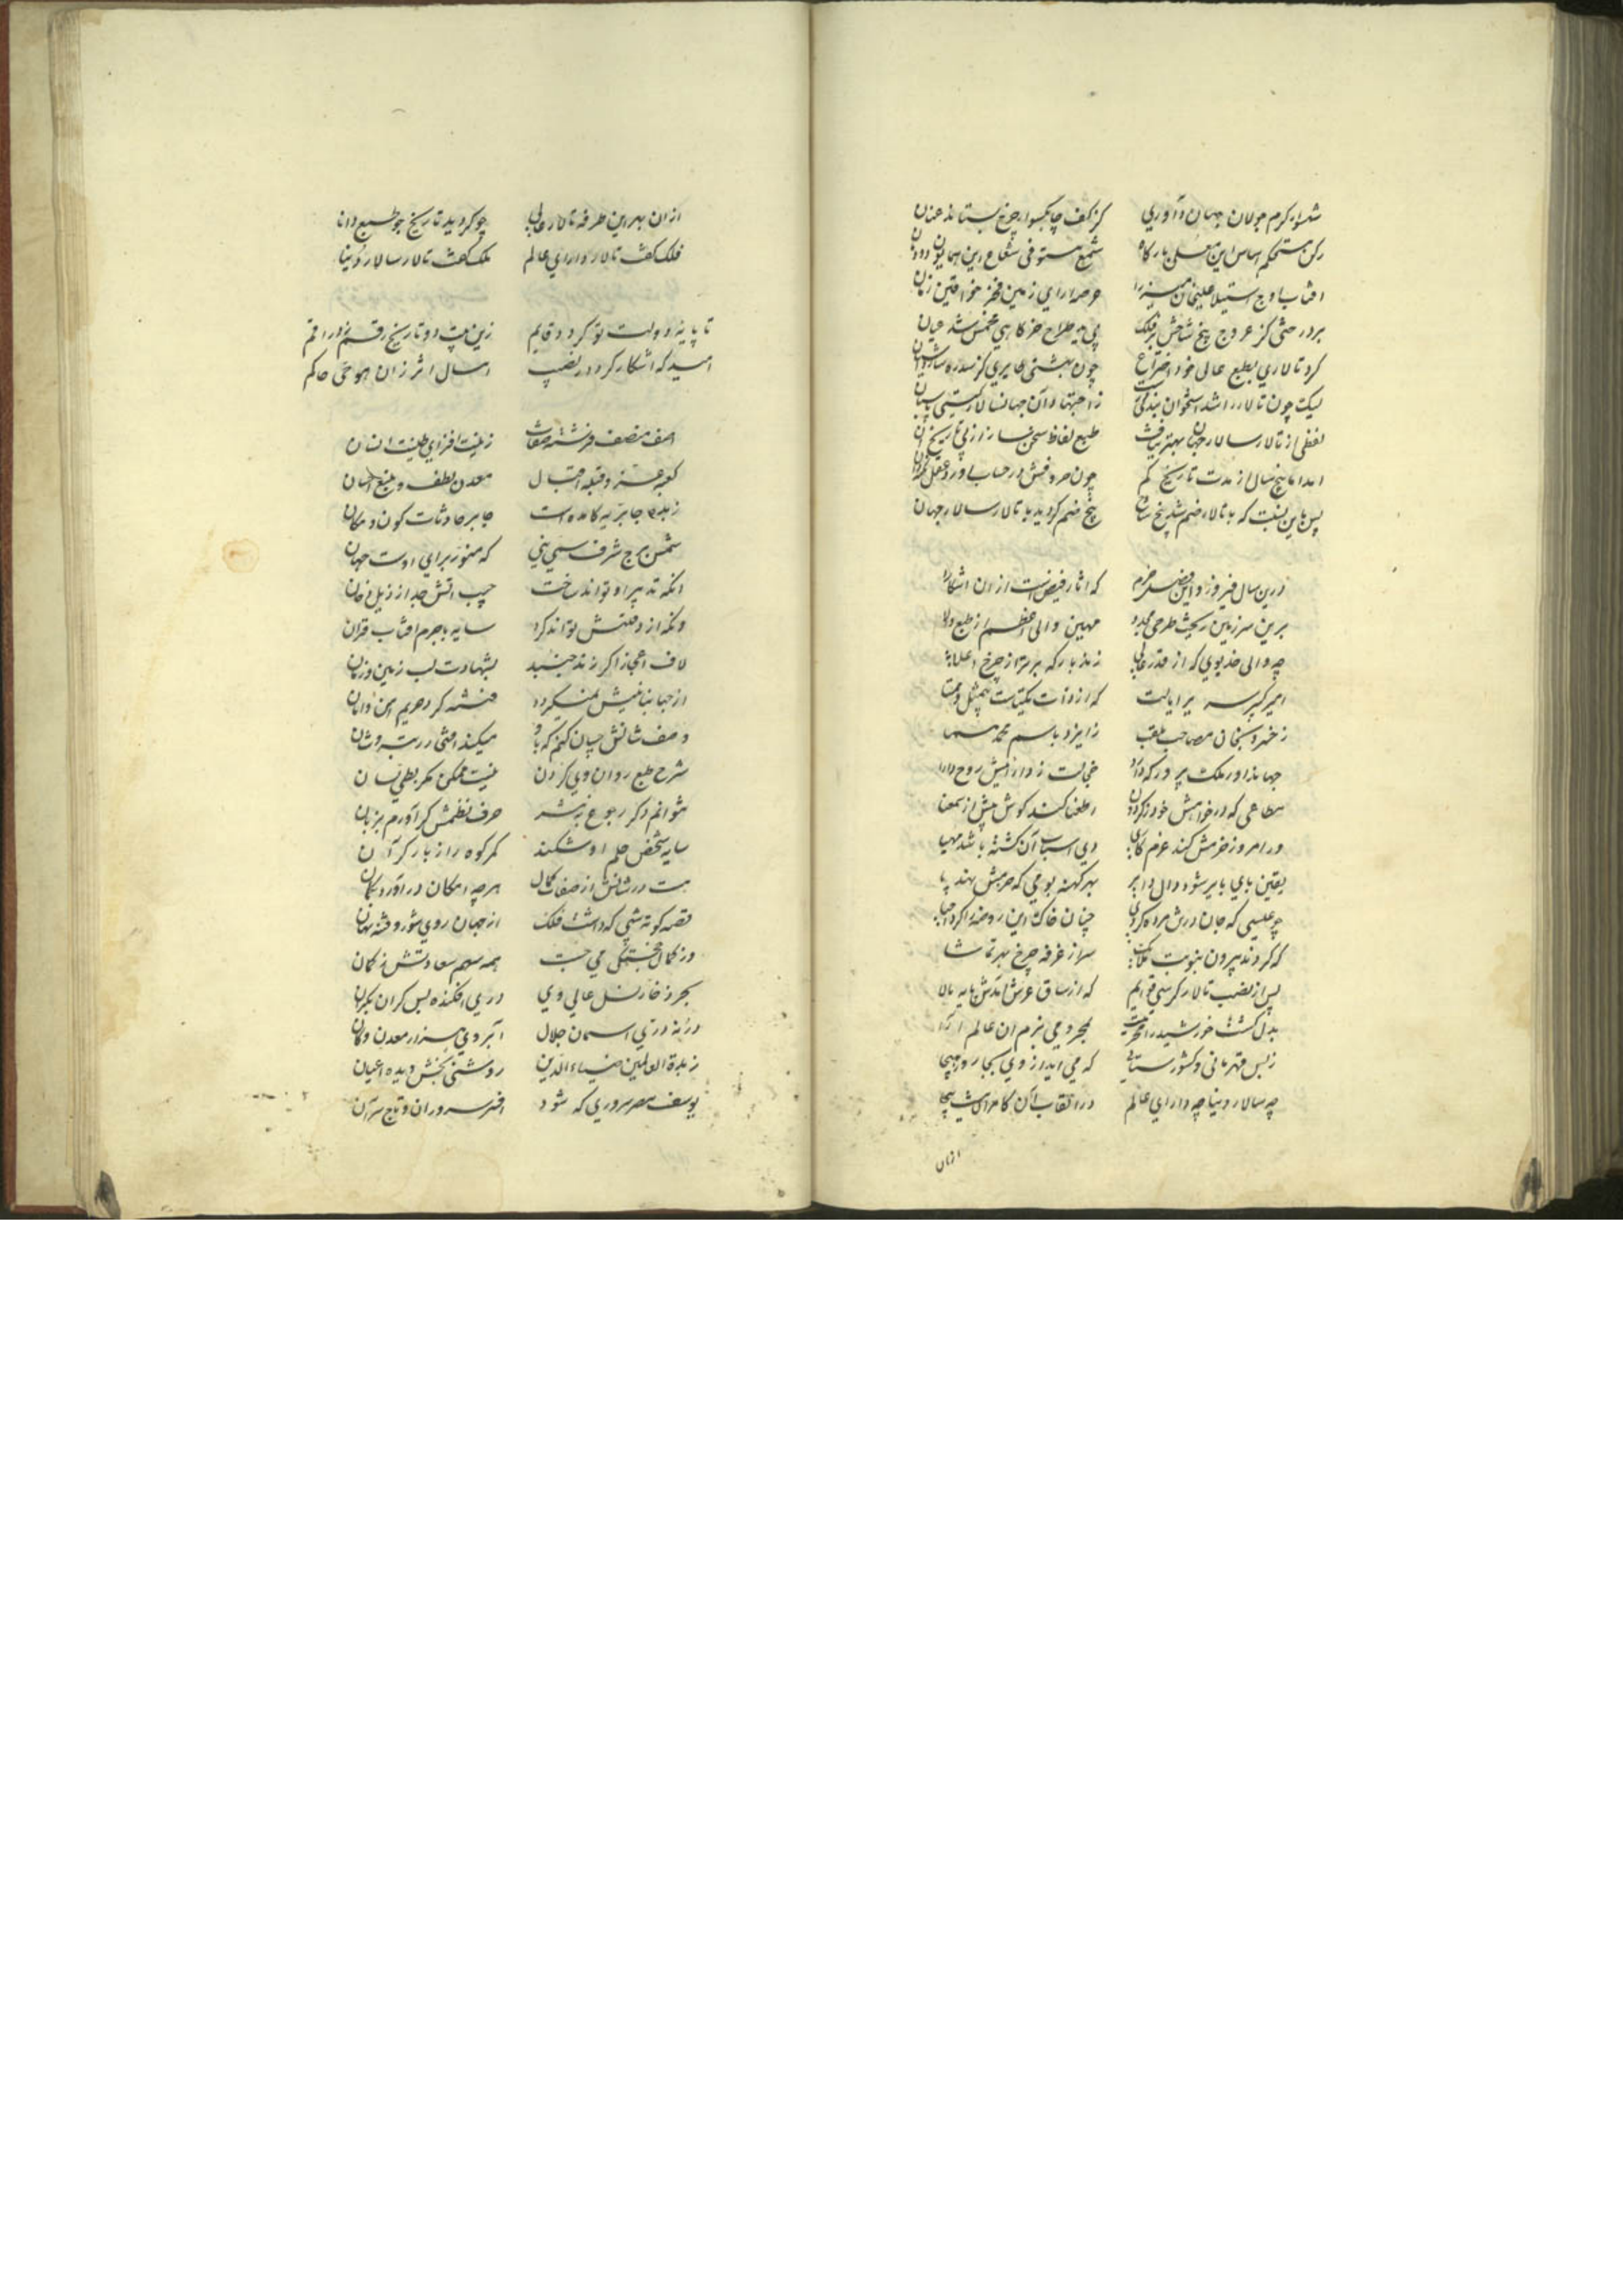 شهسوار کرم جولان جهان داوری کز کف چابکسوار چرخ بستاند عنان
رکن مستحکم اساس این معلی بارکاه شمع مستوفی شعاع این همایون دودمان
افتاب اوج استیلا علیخان میرزا عرصه ارای زمین فخر خواقین زمان
بر درختی کز عروج پنج شاخش بر فلک پی به طراح خرکاهی مخمس شد عیان
کرد تالاری بطبع عالی خود اختراع چون بهشتی
لیک چون تالار را شد استخوان بندی
لفظی از تالار سالار جهان بهتر نیافت طبع لفاظ سخن ساز از پی تاریخ آن
امد اما پنج سال از مدت تاریخ کم چون حروفش در حساب اورد عقل
پس باین نسبت که با تالار ضم شد پنج شاخ پنج ضم کردید با تالار سالار جهان
درین سال فیروز و این فصل خرم که اثار فیض است ازان اشکارا
برین سرزمین ریخت طرحی مجدد مهین والی اعظم از طبع والا
چه والی خدیوی که از قدر عالی زند بارکه برتر از چرخ اعلا
امیر کبیر سریر ایالت که از ذات یکتاست بیمثل و همتا
ز خسرو بخان مصاحب ملقب ز ایزد باسم محمد مسما
جهاندار ملک پرور که دارد خجالت ز دارائیش روح دارا
مطاعی که در خواهش خود ز کردون اطعنا کند کوش پیش از سمعنا
ور امروز خزمش کند عزم کاری دی اسباب آن کشته باشد مهیا
یقین بای بایر شود دال دایر بهر کهنه بومی که خرمش نهد پا
چو عیسی که جان در تن مرده کردی چنان خاک این روضه را کرد احیا
که کردند بیرون بنوبت ملائک سر از غرفه چرخ بهر تماشا
پس از نصب تالار کرسی قوایم که از ساق عرش امدش پایه بالا
بدل کشت خورشید را بمجرد می بزم ان عالم آرا
ز بس قهرمانی و کشورستانی که می اید از وی بیجا و بیجا
چه سالار دنیا چه دارای عالم در القاب آن کامران است
ازان
ازان بهر این طرفه تالار عالی چو کردید تاریخ جو طبع دانا
فلک کفت تالار دارای عالم ملک کفت تالار سالار دنیا
تا پایه دولت تو کردد قایم زین بیت دو تاریخ رقم زد راقم
امید که اشکار کردد ز نصیب امسال اثر زان هو حی حاکم
اصف منصف فرشته صفات زینت افزای طینت انسان
کعبه عز و قبله اقبال معدن لطف و منبع احسان
زبده جابریه کامده است جابر حادثات کون و مکان
شمس برج شرف سمی نبی که منور برای اوست جهان
انکه تدبیر او تواند ساخت جیب اتش جدا ز ذیل دخان
ونکه از دقتش تواند کرد سایه با جرم افتاب قران
لاف اعجاز اکر زند جنبد بشهادت لب زمین و زمان
از جهانبانیش نمیکردد فتنه کرد حریم امن و امان
وصف شانش چسان کنم که باو میکند افتخار رتبت و شان
شرح طبع روان وی کردن نیست ممکن مکر بطی لسان
نتوانم دکر رجوع به نثر حرف نظمش کر آورم بزبان
سایه شخص حلم او شکند کمر کوه را ز بار کران
هست در شانش از صفات کمال هرچه امکان در اورد بکمان
قصه کوته شبی که داشت فلک از جهان روی شور و فتنه نهان
وز کمال خجستکی می جست همه سهم سعادتش ز کمان
بحر زخار نسل عالی وی دری افکند بس کران بکران
در نه دری اسمان جلال آبروی هزار معدن و کان
زبدة العالمین ضیاء الدین روشنی بخش دیده اعیان
یوسف مصر سروری که شود افسر سروران و تاج سران